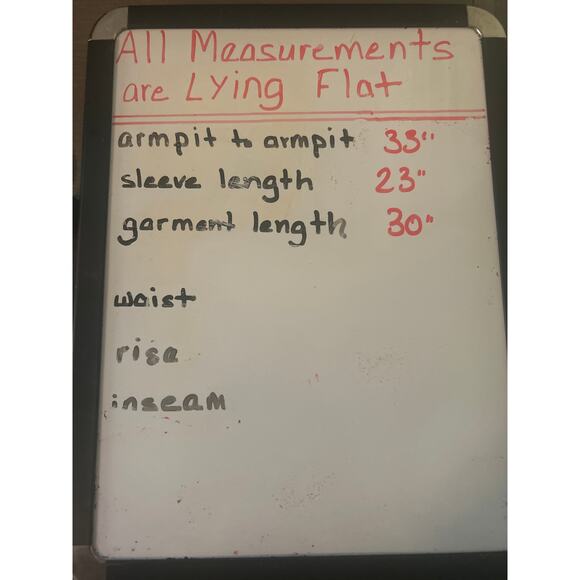 All Measurements
are Lying Flat
armpit to armpit 33"
sleeve length 23"
garment length 30"
waist
rise
inseam